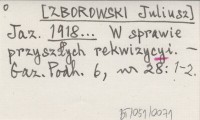 [ZBOROWSKI Juliusz]
Jaz. 1918... W sprawie
przyszłych rekwizycyi. –
Gaz. Podh. 6, nr 28: 1-2.